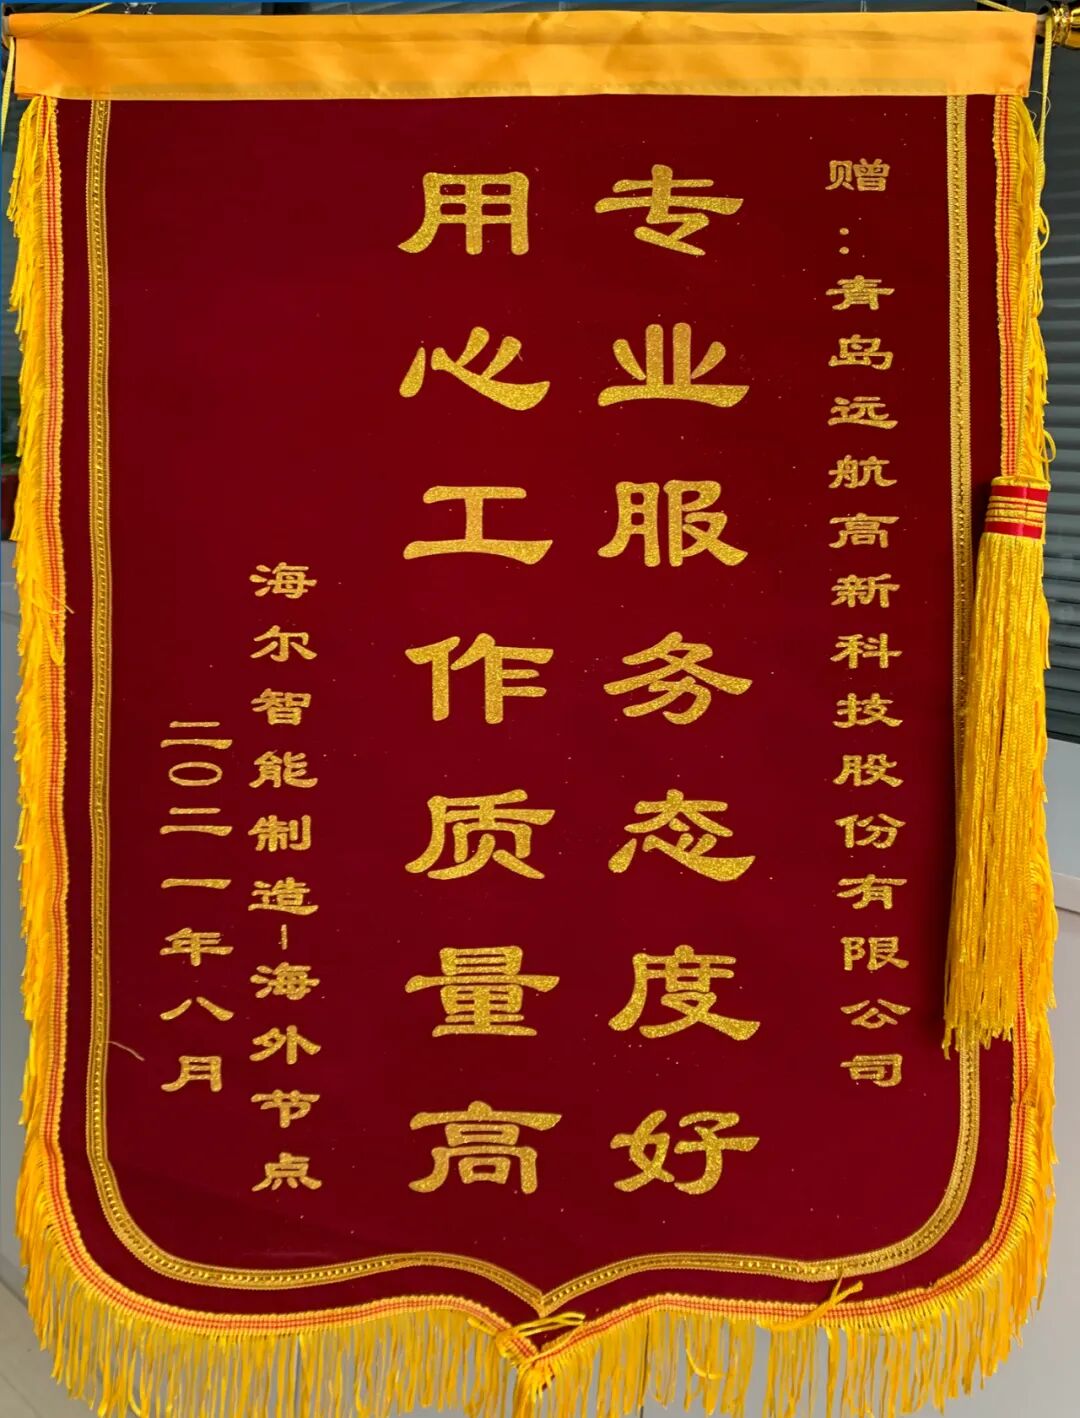 赠：青岛远航高新科技股份有限公司
专业服务态度好
用心工作质量高
海尔智能制造-海外节点
二〇二一年八月